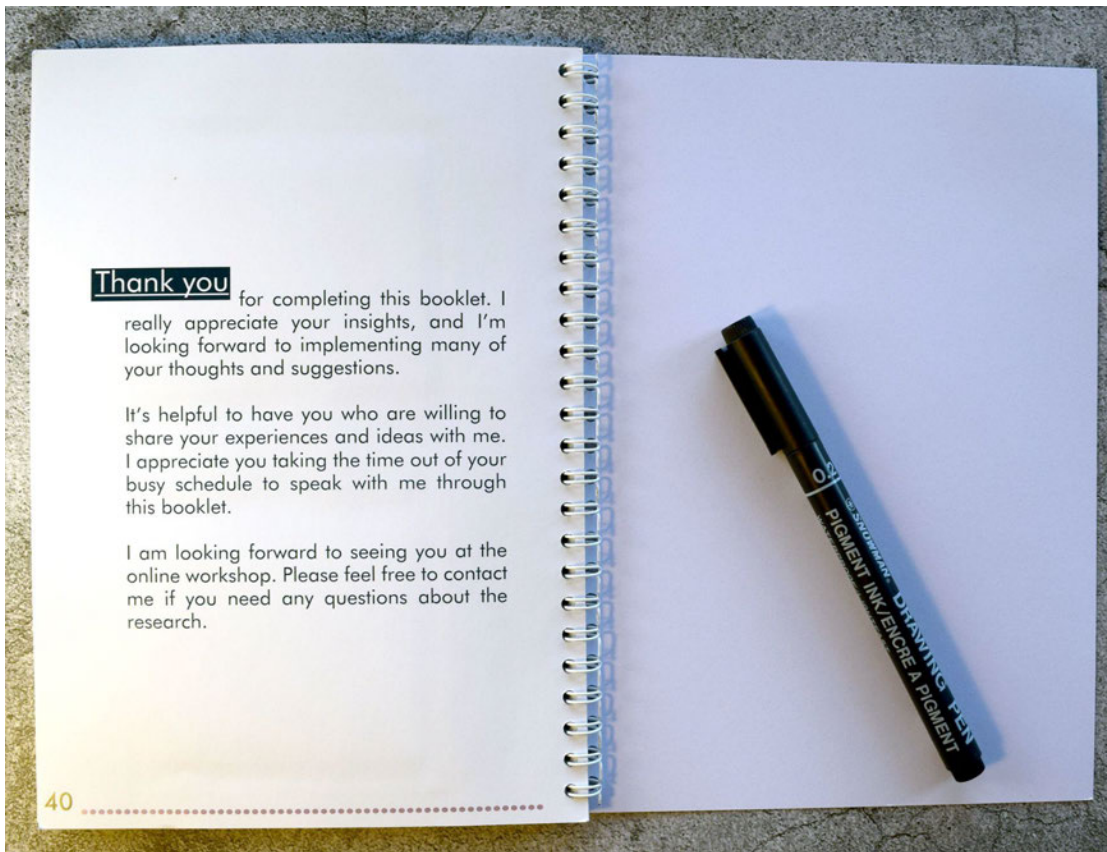 Thank you
for completing this booklet. I
really appreciate your insights, and I'm
looking forward to implementing many of
your thoughts and suggestions.
It's helpful to have you who are willing to
share your experiences and ideas with me.
I appreciate you taking the time out of your
busy schedule to speak with me through
this booklet.
I am looking forward to seeing you at the
online workshop. Please feel free to contact
me if you need any questions about the
research.
40
SNOWMAN DRAWING PEN
PIGMENT INK/ENCRE A PIGMENT